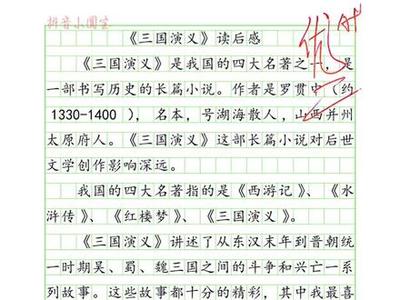 拼音小园宝
优 A+
《三国演义》读后感
《三国演义》是我国的四大名著之一,是
一部书写历史的长篇小说。作者是罗贯中(约
1330-1400),名本,号湖海散人,山西并州
太原府人。《三国演义》这部长篇小说对后世
文学创作影响深远。
我国的四大名著指的是《西游记》、《水
浒传》、《红楼梦》、《三国演义》。
《三国演义》讲述了从东汉末年到晋朝统
一时期吴、蜀、魏三国之间的斗争和兴亡一系
列故事。这些故事都十分的精彩,其中我最喜